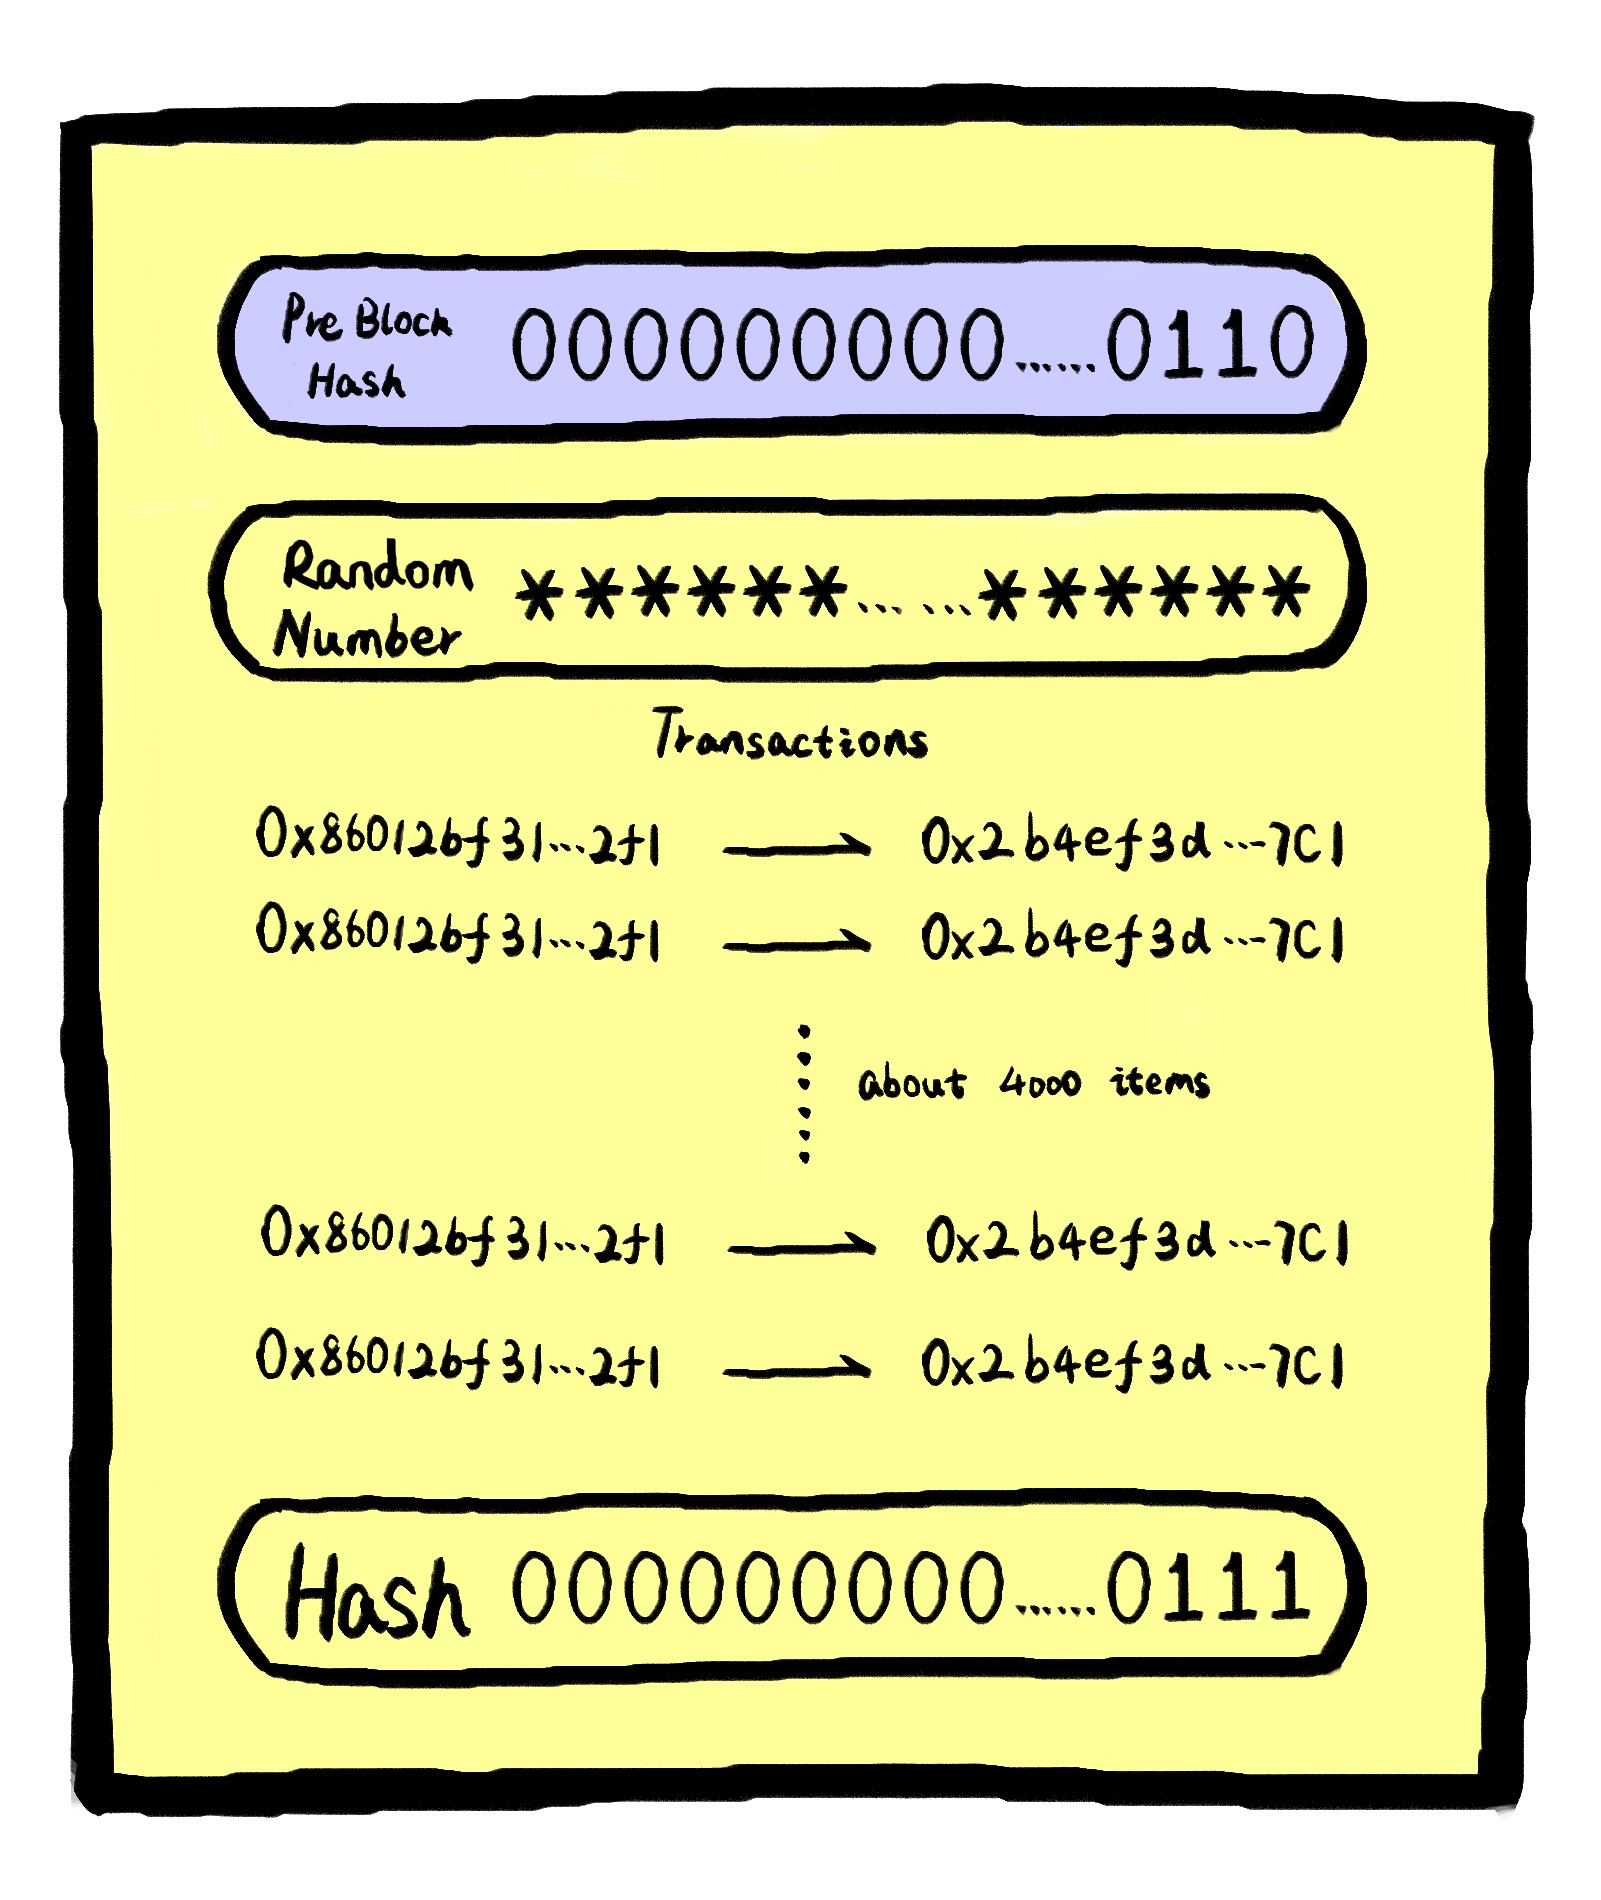 Pre Block
Hash
000000000......0110
Random
Number
******... ...******
Transactions
0x86012bf31...2f1 → 0x2b4ef3d...7C1
0x86012bf31...2f1 → 0x2b4ef3d...7C1
about 4000 items
0x86012bf31...2f1 → 0x2b4ef3d...7C1
0x86012bf31...2f1 → 0x2b4ef3d...7C1
Hash 000000000......0111